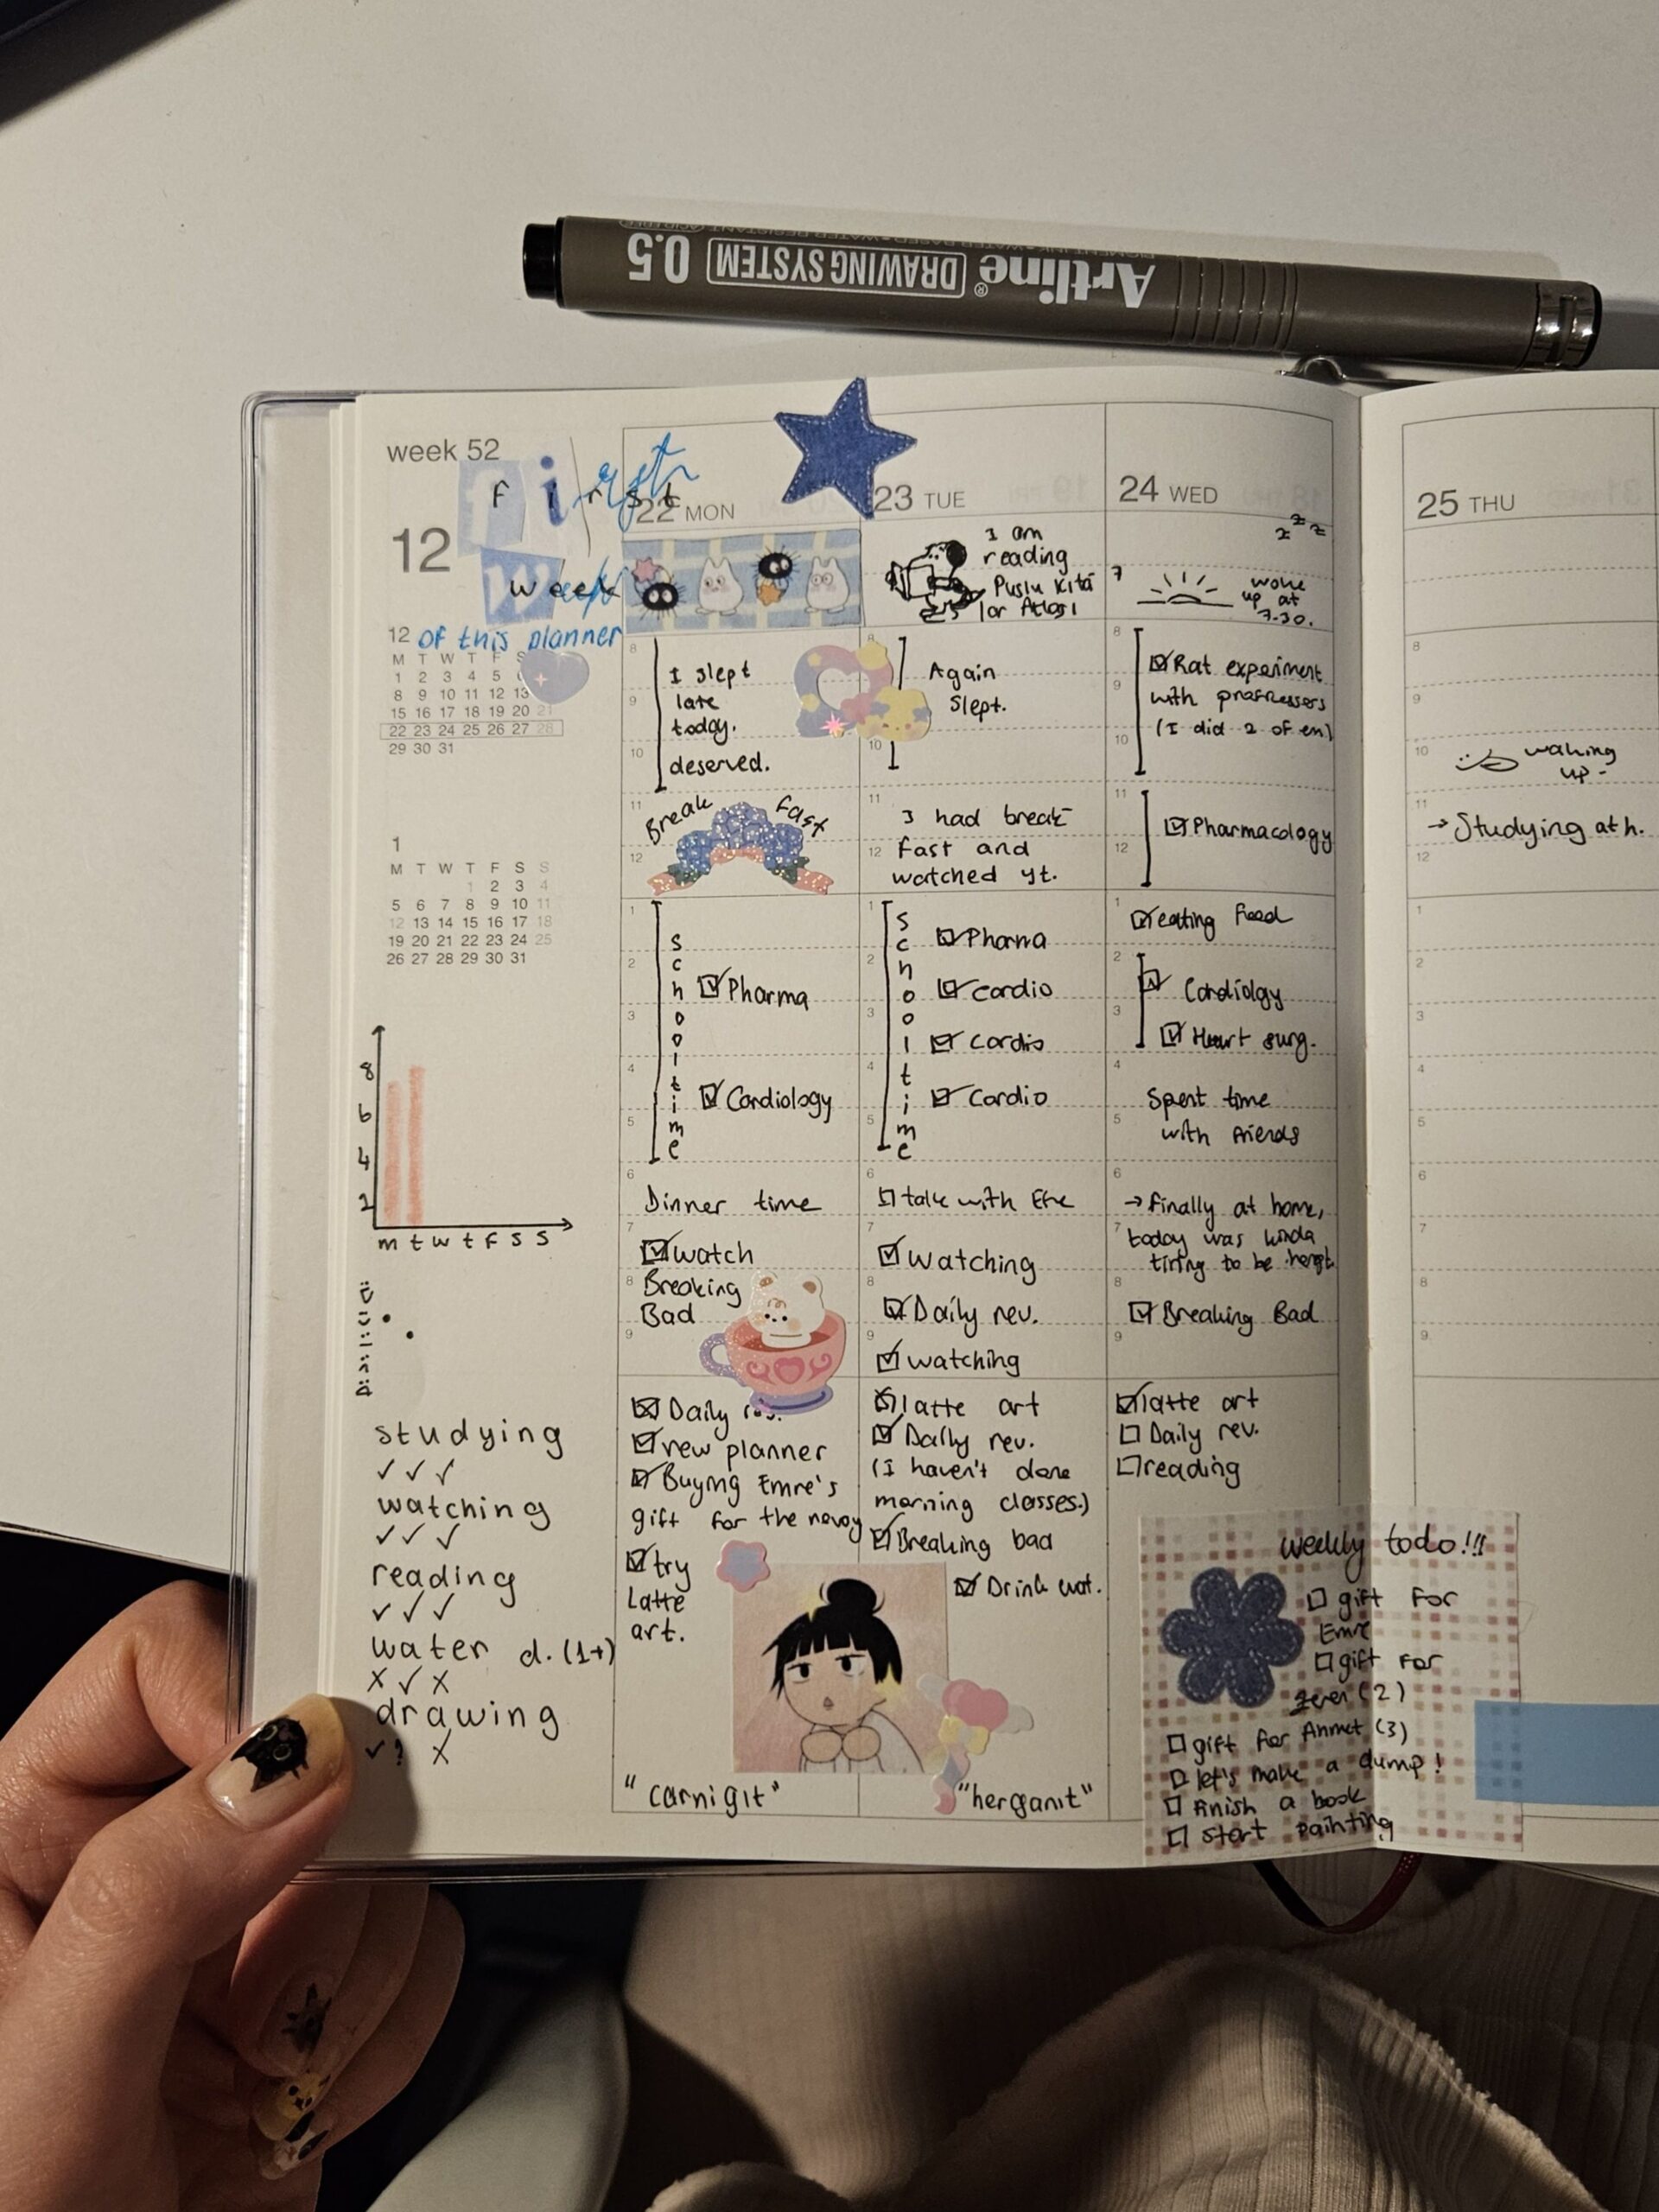 Artline® DRAWING SYSTEM 0.5
week 52
first
12
week
of this planner
12
M T W T F S
1 2 3 4 5
8 9 10 11 12 13
15 16 17 18 19 20 21
22 23 24 25 26 27 28
29 30 31
1
M T W T F S S
1 2 3 4
5 6 7 8 9 10 11
12 13 14 15 16 17 18
19 20 21 22 23 24 25
26 27 28 29 30 31
8
6
4
2
m t w t f s s
studying
✓ ✓ ✓
watching
✓ ✓ ✓
reading
✓ ✓ ✓
water d. (1+)
x ✓ x
drawing
✓ ? x
22 MON
8
9
10
11
12
I slept
late
today.
deserved.
Break fast
1
2
3
4
5
School time
Pharma
Cardiology
6
Dinner time
7
watch
8
Breaking
Bad
9
Daily
new planner
Buying Emre's
gift for the
try
Latte
art.
"carnigit"
23 TUE
I am
reading
Puslu Kıta
lar Atlası
8
10
Again
slept.
11
I had break
12
fast and
watched yt.
1
2
3
4
5
School time
Pharma
Cardio
Cardio
Cardio
6
talk with Efe
7
Watching
8
Daily rev.
9
watching
latte art
Daily rev.
(I haven't done
morning classes.)
Breaking bad
Drink wat.
24 WED
z z z
7
woke
up at
7.30.
8
Rat experiment
9
with professors
10
(I did 2 of em)
11
Pharmacology
12
1
eating food
2
Cardiolgy
3
Heart surg.
4
Spent time
5
with friends
6
→ finally at home,
7
today was kinda
tiring to be
8
Breaking Bad
9
latte art
Daily rev.
reading
weekly todo!!!
gift for
Emre
gift for
(2)
gift for Ahmet (3)
let's make a dump!
finish a book
start painting
25 THU
8
9
10
waking
up -
11
→ Studying at h.
12
1
2
3
4
5
6
7
8
9